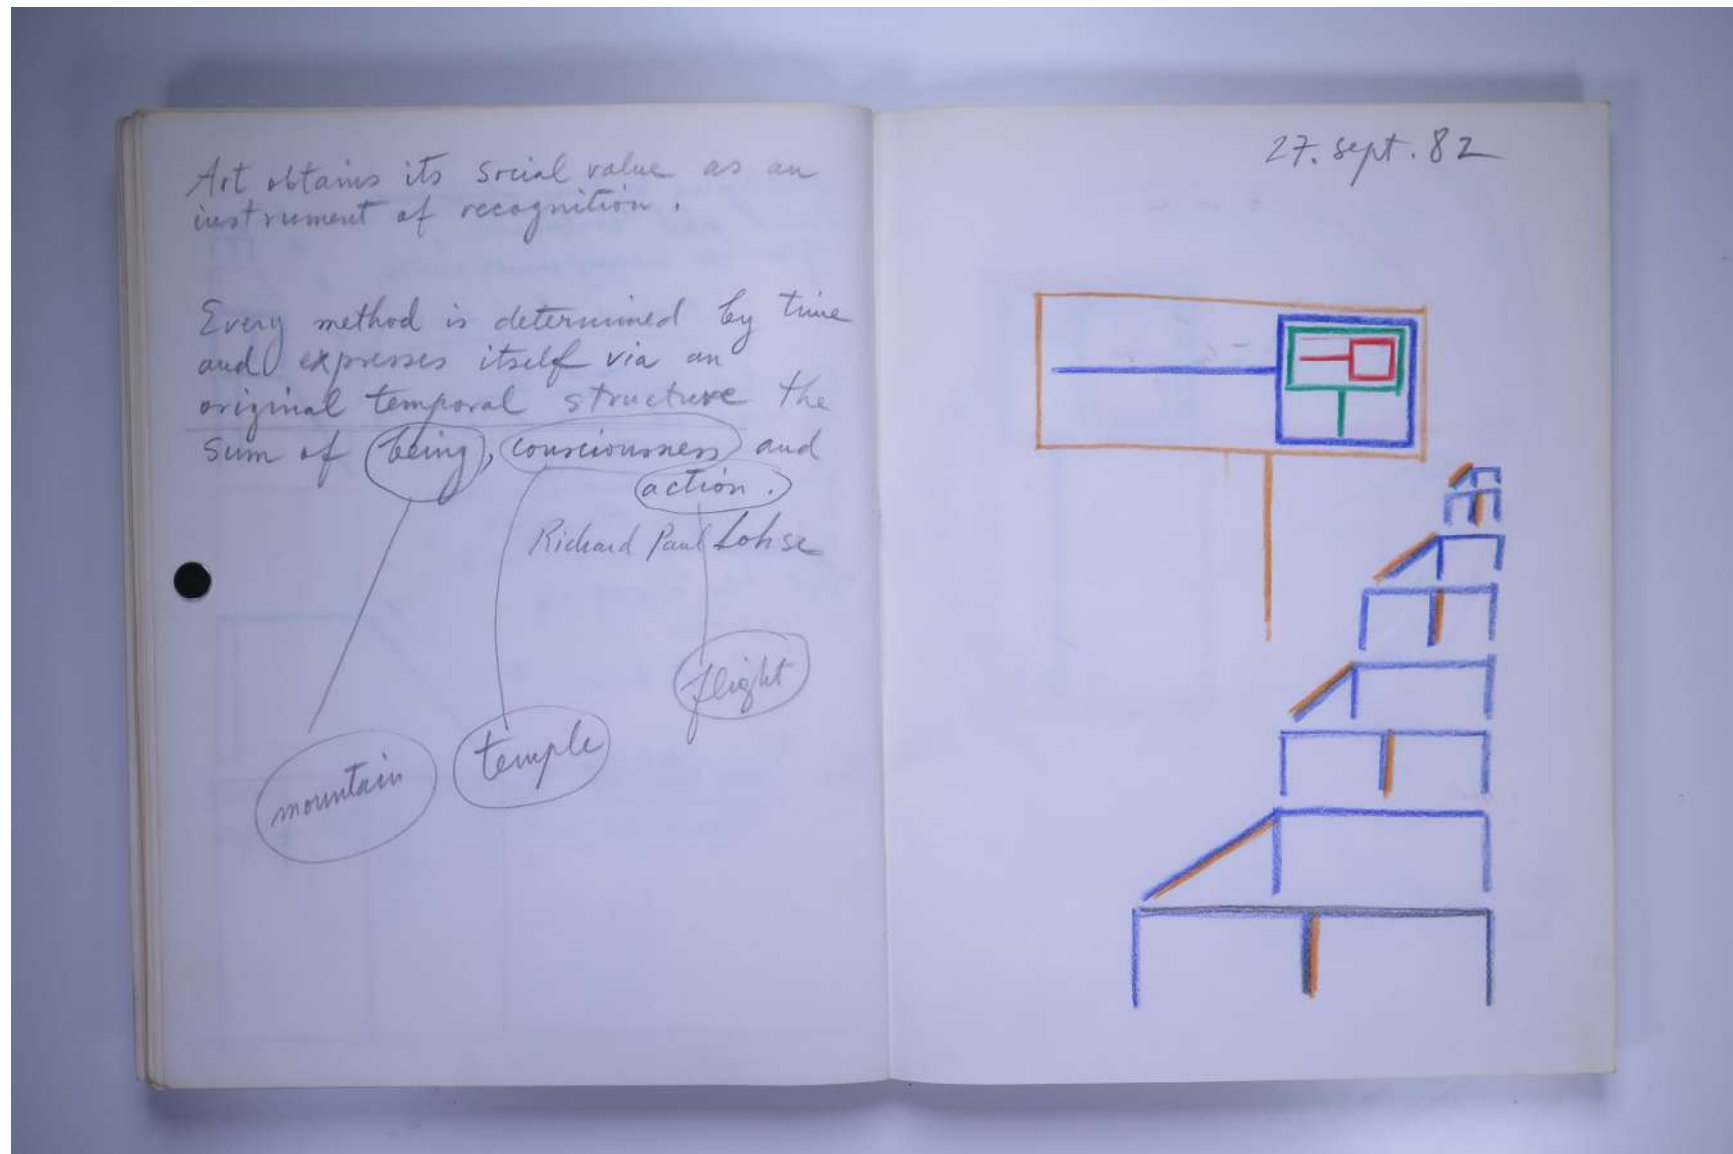 Art obtains its social value as an
instrument of recognition.
Every method is determined by time
and expresses itself via an
original temporal structure the
sum of being, consciousness and
action.
Richard Paul Lohse
flight
temple
mountain
27. sept. 82